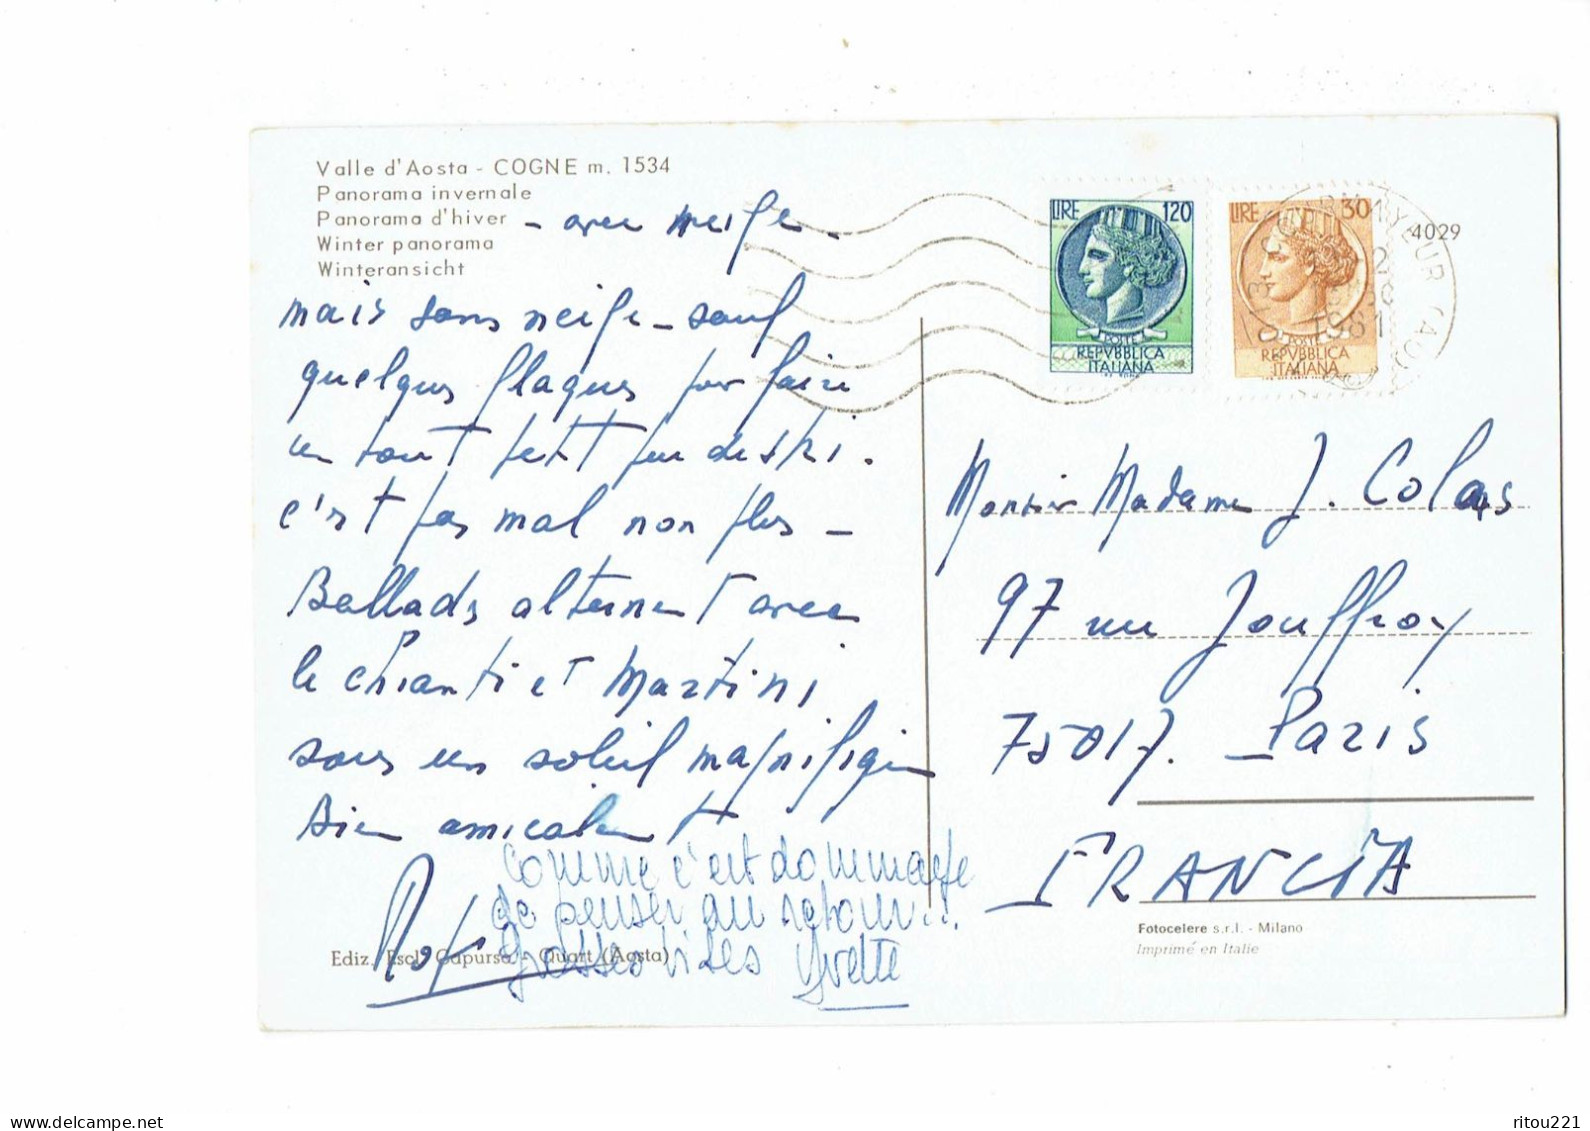 Valle d'Aosta - COGNE m. 1534
Panorama invernale
Panorama d'hiver - avec neige -
Winter panorama
Winteransicht
mais sans neige - sauf
quelques plaques pour faire
un tout petit peu de ski.
c'est pas mal non plus -
Ballads alternent avec
le chianti et Martini
sous un soleil magnifique
Bien amicalement
Comme c'est dommage
de penser au retour...
Grosses bises Yvette
Ediz. Escl. Capurso - Quart (Aosta)
LIRE 120
POSTE
REPVBBLICA
ITALIANA
LIRE 30
POSTE
REPVBBLICA
ITALIANA
1981
4029
Monsieur Madame J. Colas
97 rue Jouffroy
75017. Paris
FRANCIA
Fotocelere s.r.l. - Milano
Imprimé en Italie
ritou221